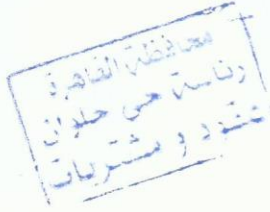 محافظة القاهرة
رئاسة حى حلوان
عقود و مشتريات